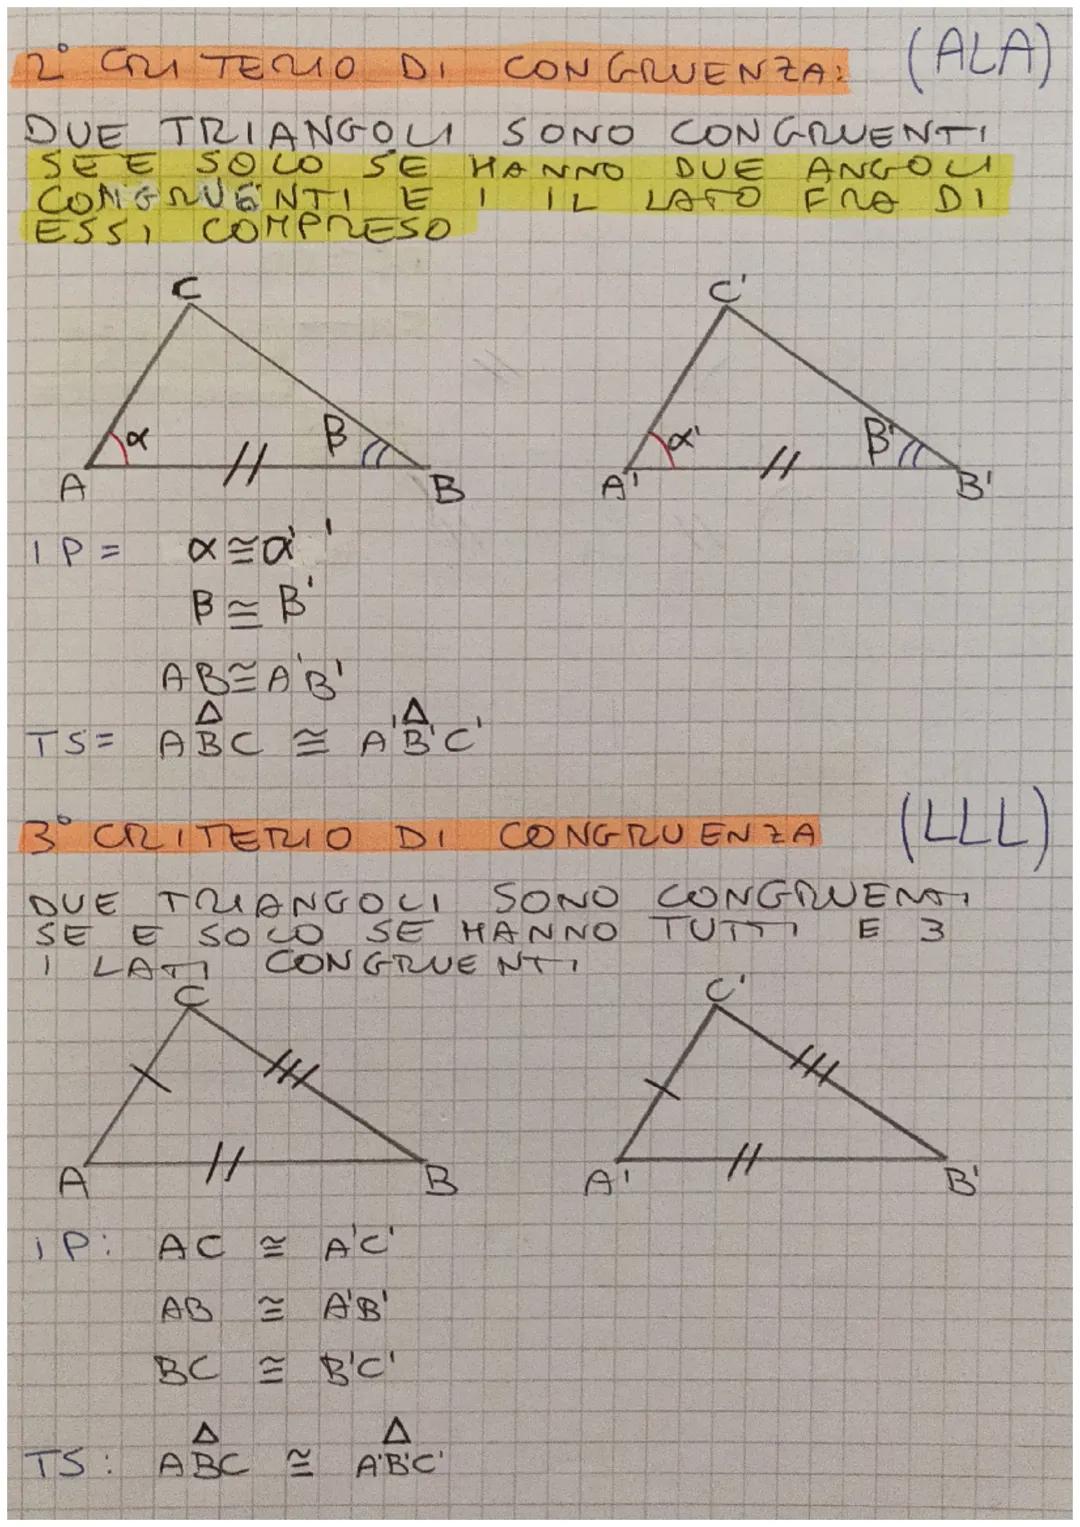 2° CRITERIO DI CONGRUENZA: (ALA)
DUE TRIANGOLI SONO CONGRUENTI
SE E SOLO SE HANNO DUE ANGOLI
CONGRUENTI E I IL LATO FRA DI
ESSI COMPRESO
C C'
α β α' β'
A B A' B'
IP= α≅α'
β≅β'
AB≅A'B'
Δ Δ
TS= ABC ≅ A'B'C'
3° CRITERIO DI CONGRUENZA (LLL)
DUE TRIANGOLI SONO CONGRUENTI
SE E SOLO SE HANNO TUTTI E 3
I LATI CONGRUENTI
C C'
A B A' B'
IP: AC ≅ A'C'
AB ≅ A'B'
BC ≅ B'C'
Δ Δ
TS: ABC ≅ A'B'C'